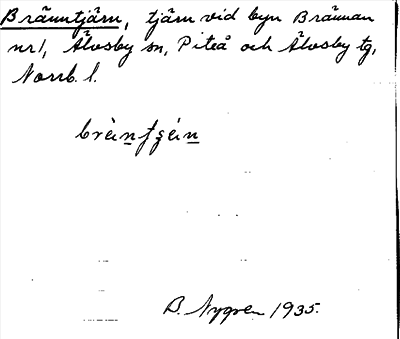 Bränntjärn, tjärn vid byn Brännan
nr 1, Älvsby sn, Piteå och Älvsby tg,
Norrb. l.
B. Nygren 1935.